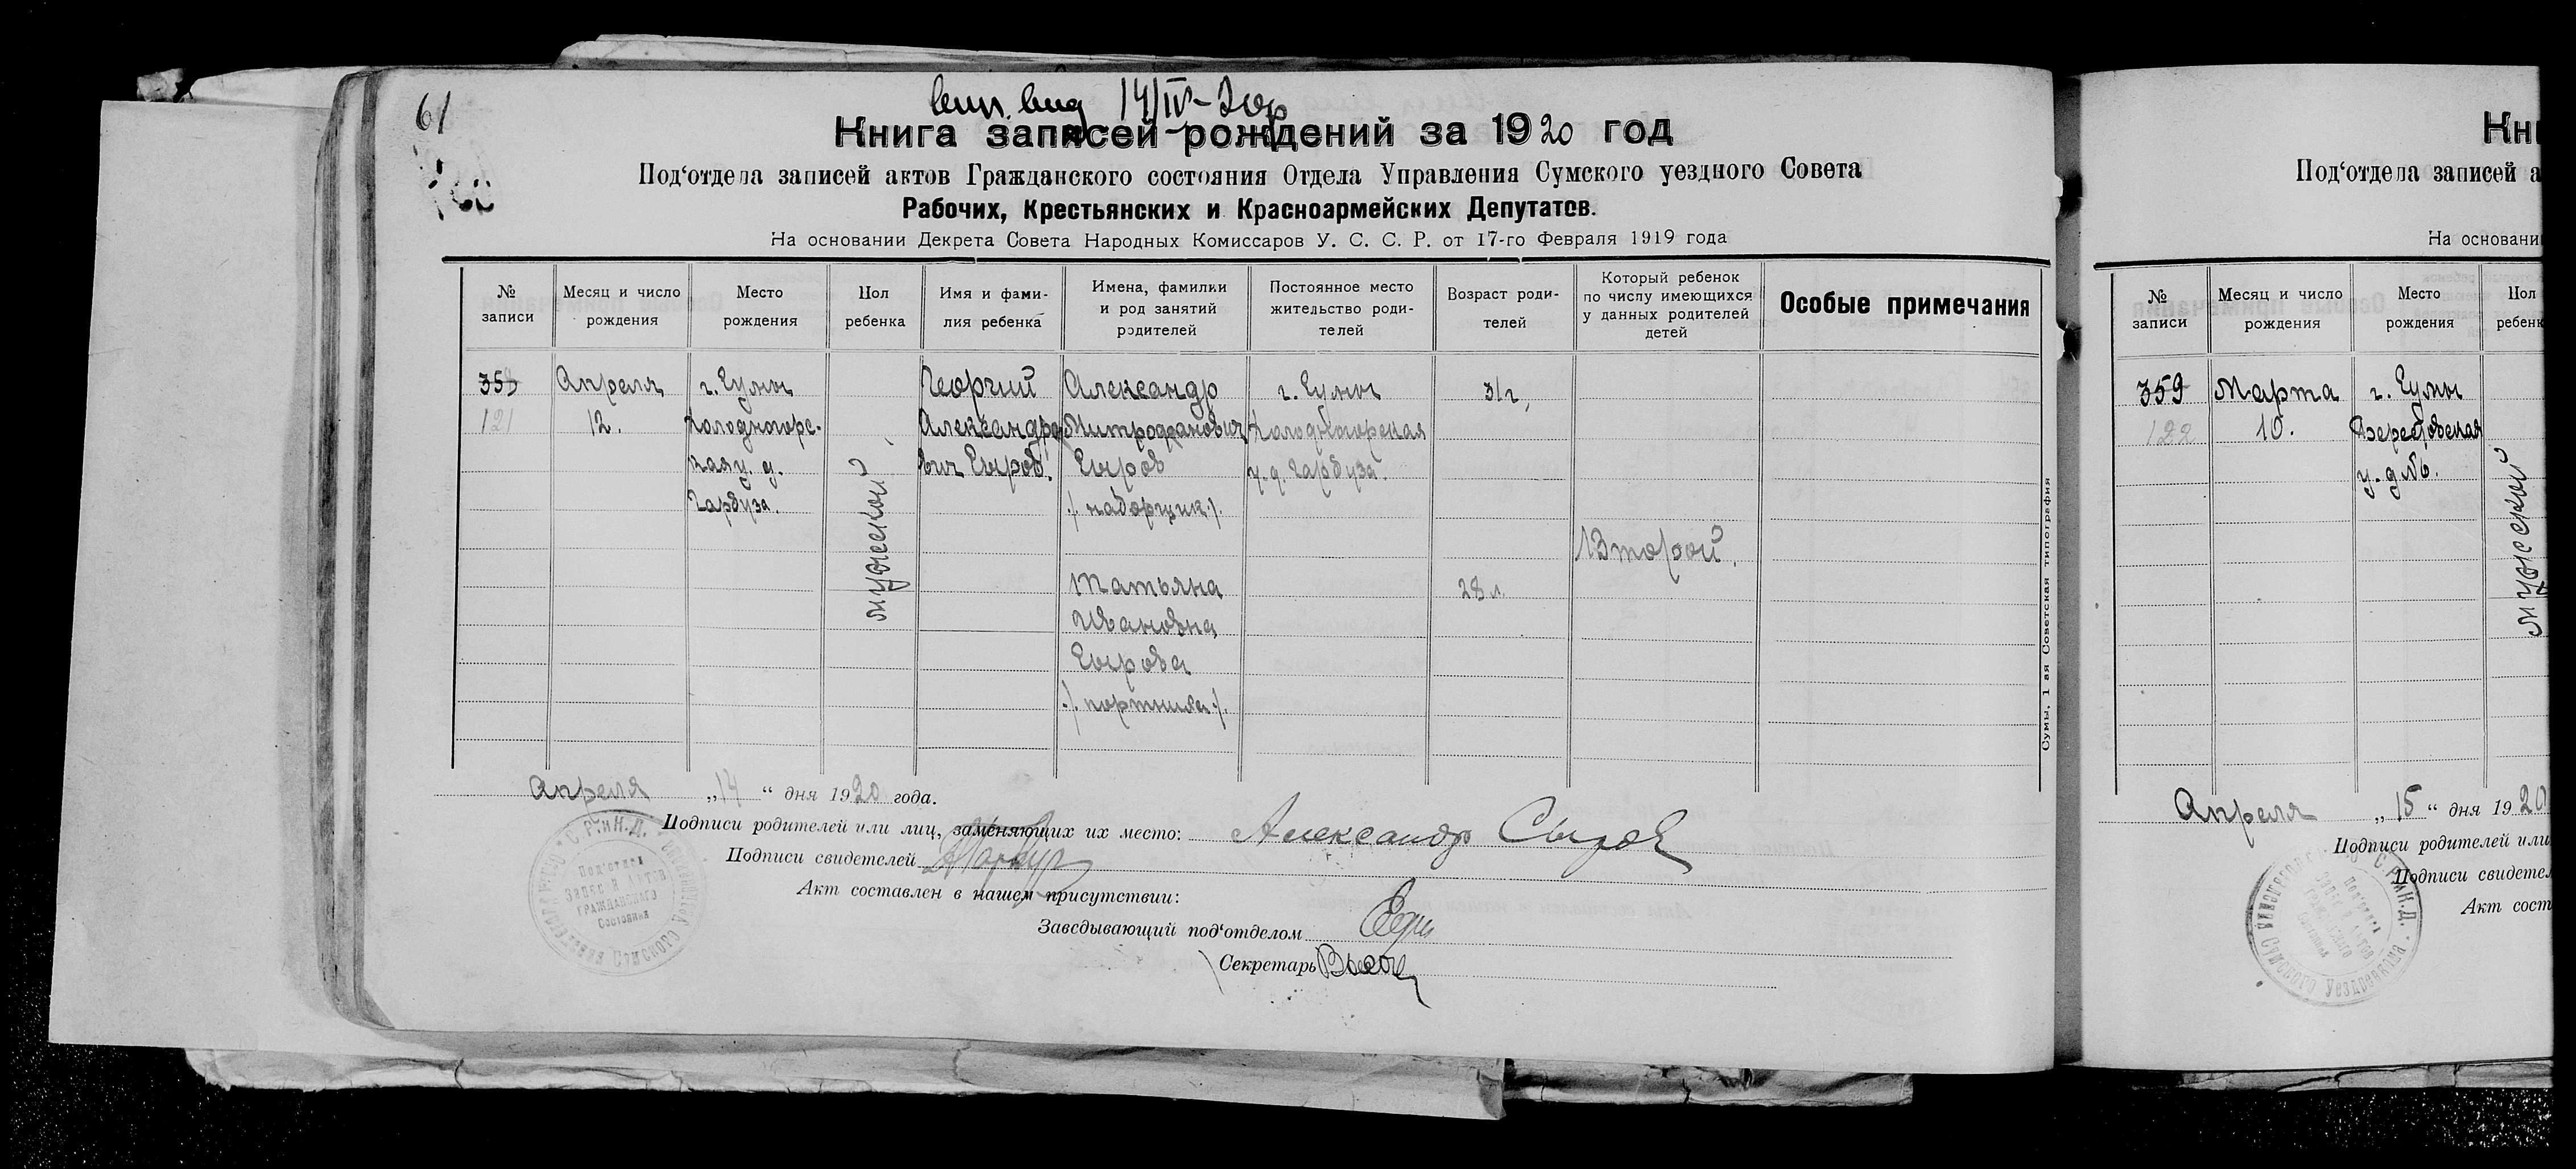 61
вып. вид 14/IV-20г
Книга записей рождений за 1920 год
Под‘отдела записей актов Гражданского состояния Отдела Управления Сумского уездного Совета
Рабочих, Крестьянских и Красноармейских Депутатов.
На основании Декрета Совета Народных Комиссаров У. С. С. Р. от 17-го Февраля 1919 года
№ записи
Месяц и число рождения
Место рождения
Пол ребенка
Имя и фами-
лия ребенка
Имена, фамилии
и род занятий
родителей
Постоянное место
жительство роди-
телей
Возраст роди-
телей
Который ребенок
по числу имеющихся
у данных родителей
детей
Особые примечания
358
121
Апреля
12.
г. Сумы
Холодногорс-
кая у. д.
Гарбуза.
мужской
Георгий
Александро
вич Сыров.
Александр
Митрофанович
Сыров
/. наборщик /.
Татьяна
Ивановна
Сырова
/. портниха /.
г. Сумы
Холодногорская
у. д. Гарбуза.
31 г.
28 л.
Второй.
Сумы, 1 ая Советская типография
Апреля „14“ дня 1920 года.
Подписи родителей или лиц, заменяющих их место: Александр Сыров
Подписи свидетелей
Акт составлен в нашем присутствии:
Заведывающий под‘отделом
Секретарь
Под'отдел
Записи Актов
ГРАЖДАНСКОГО
Состояния
Кни
Под‘отдела записей а
На основани
№ записи
Месяц и число рождения
Место рождения
Пол
ребенк
359
122
Марта
10.
г. Сумы
у. д №6.
мужской
Апреля „15“ дня 1920
Подписи родителей или
Подписи свидетел
Акт сост